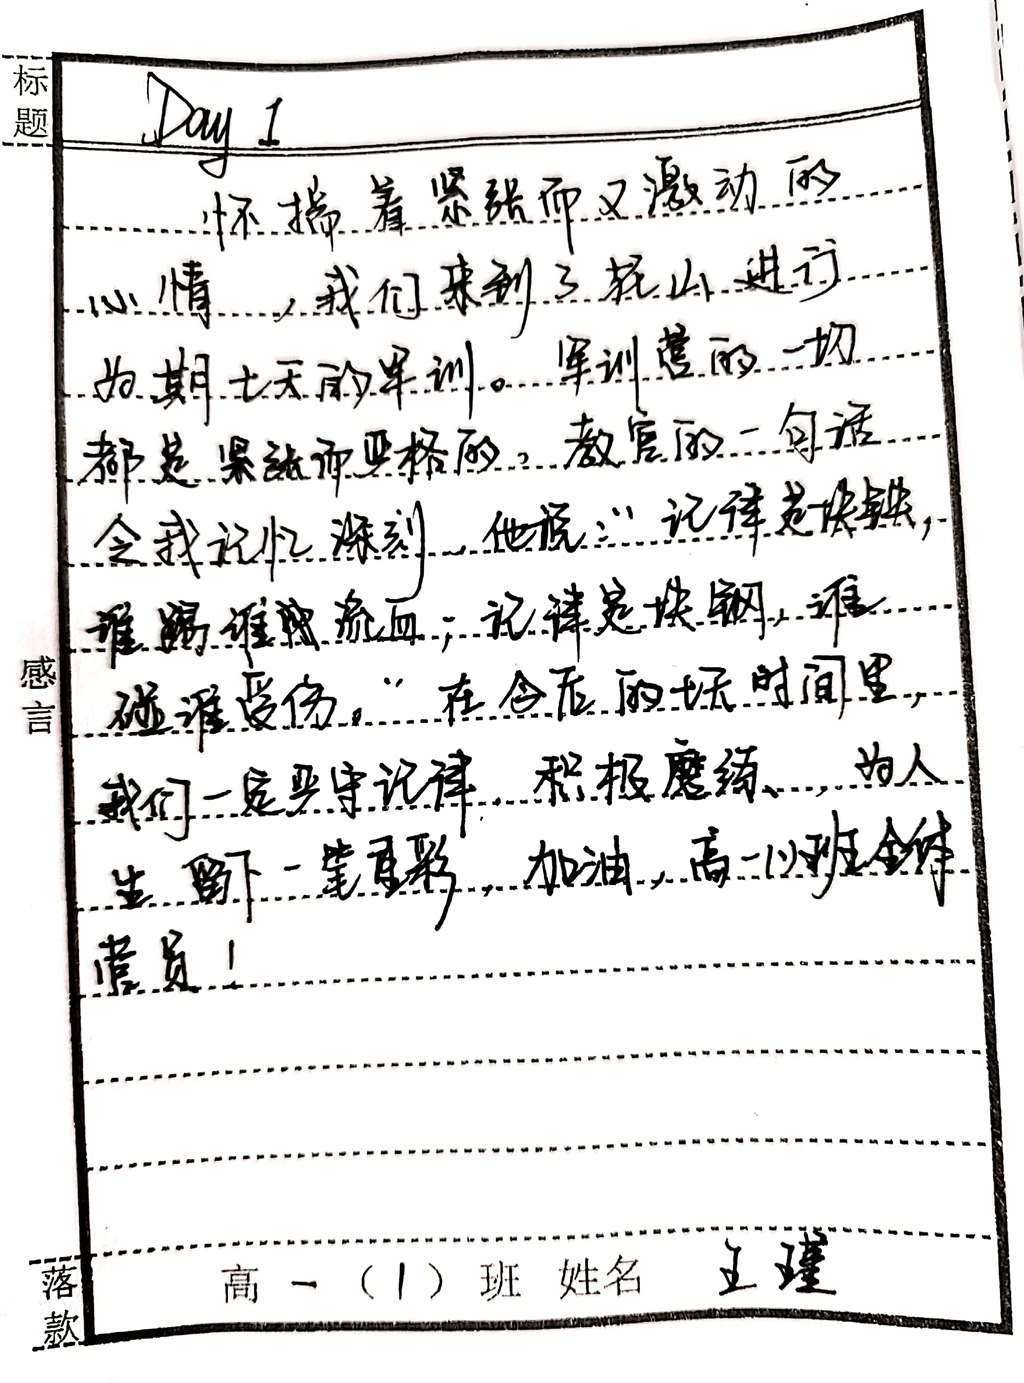 标题
Day 1
怀揣着紧张而又激动的
心情，我们来到了花山进行
为期七天的军训。军训营的一切
都是紧张而严格的。教官的一句话
令我记忆深刻，他说：“记律是块铁，
谁踢谁就流血；记律是块钢，谁
碰谁受伤。”在今后的七天时间里，
感言
我们一定严守记律，积极磨练，为人
生留下一笔重彩，加油，高一(1)班全体
营员！
落款
高一（1）班 姓名 王瑾